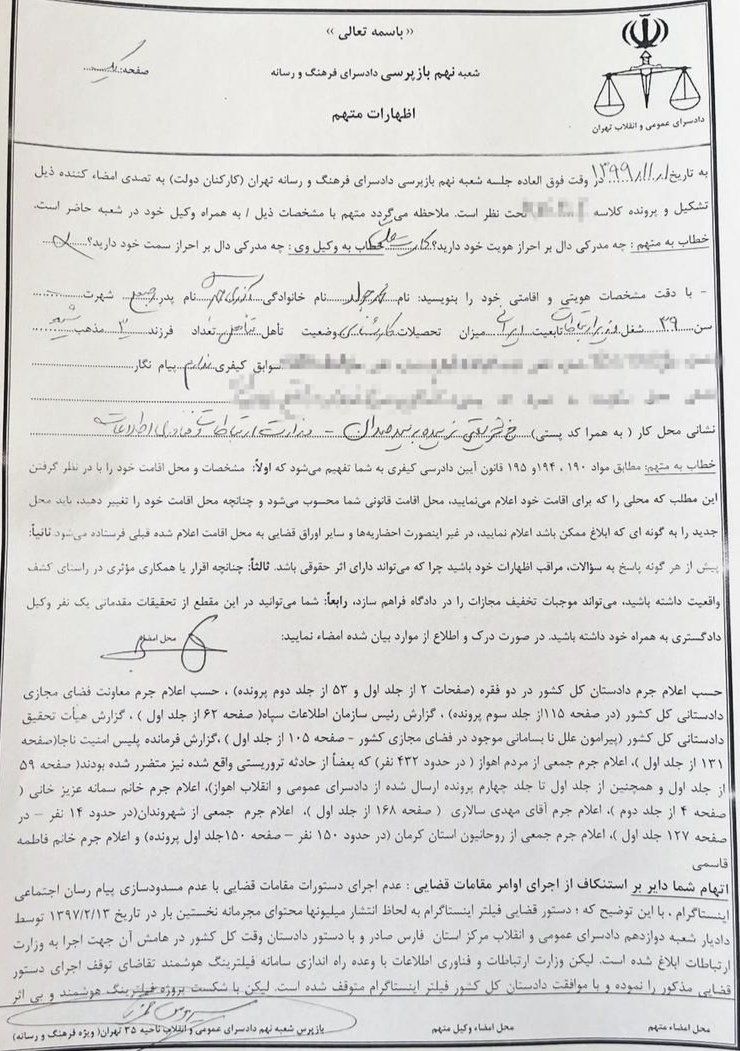 «« باسمه تعالی »»
شعبه نهم بازپرسی دادسرای فرهنگ و رسانه
صفحه: یک
اظهارات متهم
دادسرای عمومی و انقلاب تهران
به تاریخ ۱۳۹۹/۱۱/۱ در وقت فوق العاده جلسه شعبه نهم بازپرسی دادسرای فرهنگ و رسانه تهران (کارکنان دولت) به تصدی امضاء کننده ذیل
تشکیل و پرونده کلاسه تحت نظر است. ملاحظه می‌گردد متهم با مشخصات ذیل / به همراه وکیل خود در شعبه حاضر است.
خطاب به متهم : چه مدرکی دال بر احراز هویت خود دارید؟ کارت ملی خطاب به وکیل وی : چه مدرکی دال بر احراز سمت خود دارید؟
- با دقت مشخصات هویتی و اقامتی خود را بنویسید: نام محمدجواد نام خانوادگی آذری جهرمی نام پدر شهرت
سن ۳۹ شغل وزیر ارتباطات تابعیت ایرانی میزان تحصیلات کارشناسی وضعیت تأهل متاهل تعداد فرزند ۳ مذهب شیعه
سوابق کیفری ندارم پیام نگار
نشانی محل کار ( به همرا کد پستی) خ شریعتی نرسیده به پل سیدخندان - وزارت ارتباطات و فناوری اطلاعات
خطاب به متهم: مطابق مواد ۱۹۰ ، ۱۹۴ و ۱۹۵ قانون آیین دادرسی کیفری به شما تفهیم می‌شود که اولاً: مشخصات و محل اقامت خود را با در نظر گرفتن
این مطلب که محلی را که برای اقامت خود اعلام می‌نمایید، محل اقامت قانونی شما محسوب می‌شود و چنانچه محل اقامت خود را تغییر دهید، باید محل
جدید را به گونه ای که ابلاغ ممکن باشد اعلام نمایید، در غیر اینصورت احضاریه‌ها و سایر اوراق قضایی به محل اقامت اعلام شده قبلی فرستاده می‌شود ثانیاً:
پیش از هر گونه پاسخ به سؤالات، مراقب اظهارات خود باشید چرا که می‌تواند دارای اثر حقوقی باشد. ثالثاً: چنانچه اقرار یا همکاری مؤثری در راستای کشف
واقعیت داشته باشید، می‌تواند موجبات تخفیف مجازات را در دادگاه فراهم سازد، رابعاً: شما می‌توانید در این مقطع از تحقیقات مقدماتی یک نفر وکیل
دادگستری به همراه خود داشته باشید. در صورت درک و اطلاع از موارد بیان شده امضاء نمایید: محل امضاء
حسب اعلام جرم دادستان کل کشور در دو فقره (صفحات ۲ از جلد اول و ۵۳ از جلد دوم پرونده) ، حسب اعلام جرم معاونت فضای مجازی
دادستانی کل کشور (در صفحه ۱۱۵از جلد سوم پرونده) ، گزارش رئیس سازمان اطلاعات سپاه( صفحه ۶۲ از جلد اول ) ، گزارش هیأت تحقیق
دادستانی کل کشور (پیرامون علل نا بسامانی موجود در فضای مجازی کشور - صفحه ۱۰۵ از جلد اول ) ،گزارش فرمانده پلیس امنیت ناجا(صفحه
۱۳۱ از جلد اول )، اعلام جرم جمعی از مردم اهواز ( در حدود ۴۳۲ نفر) که بعضاً از حادثه تروریستی واقع شده نیز متضرر شده بودند( صفحه ۵۹
از جلد اول و همچنین از جلد اول تا جلد چهارم پرونده ارسال شده از دادسرای عمومی و انقلاب اهواز)، اعلام جرم خانم سمانه عزیز خانی (
صفحه ۴ از جلد دوم )، اعلام جرم آقای مهدی سالاری ( صفحه ۱۶۸ از جلد اول )، اعلام جرم جمعی از شهروندان(در حدود ۱۴ نفر - در
صفحه ۱۲۷ جلد اول )، اعلام جرم جمعی از روحانیون استان کرمان (در حدود ۱۵۰ نفر – صفحه ۱۵۰جلد اول پرونده) و اعلام جرم خانم فاطمه
قاسمی
اتهام شما دایر بر استنکاف از اجرای اوامر مقامات قضایی : عدم اجرای دستورات مقامات قضایی با عدم مسدودسازی پیام رسان اجتماعی
اینستاگرام ، با این توضیح که ؛ دستور قضایی فیلتر اینستاگرام به لحاظ انتشار میلیونها محتوای مجرمانه نخستین بار در تاریخ ۱۳۹۷/۲/۱۳ توسط
دادیار شعبه دوازدهم دادسرای عمومی و انقلاب مرکز استان فارس صادر و با دستور دادستان وقت کل کشور در هامش آن جهت اجرا به وزارت
ارتباطات ابلاغ شده است. لیکن وزارت ارتباطات و فناوری اطلاعات با وعده راه اندازی سامانه فیلترینگ هوشمند تقاضای توقف اجرای دستور
قضایی مذکور را نموده و با موافقت دادستان کل کشور فیلتر اینستاگرام متوقف شده است. لیکن با شکست پروژه فیلترینگ هوشمند و بی اثر
محل امضاء متهم
محل امضاء وکیل متهم
بازپرس شعبه نهم دادسرای عمومی و انقلاب ناحیه ۳۵ تهران( ویژه فرهنگ و رسانه)